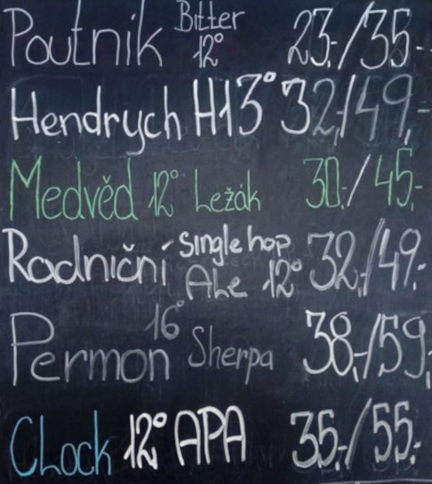 Poutník Bitter 12° 23,-/35,-
Hendrych H13° 32,-/49,-
Medvěd 12° Ležák 30,-/45,-
Radniční Single hop Ale 12° 32,-/49,-
Permon 16° Sherpa 38,-/59,-
CLock 12° APA 35,-/55,-